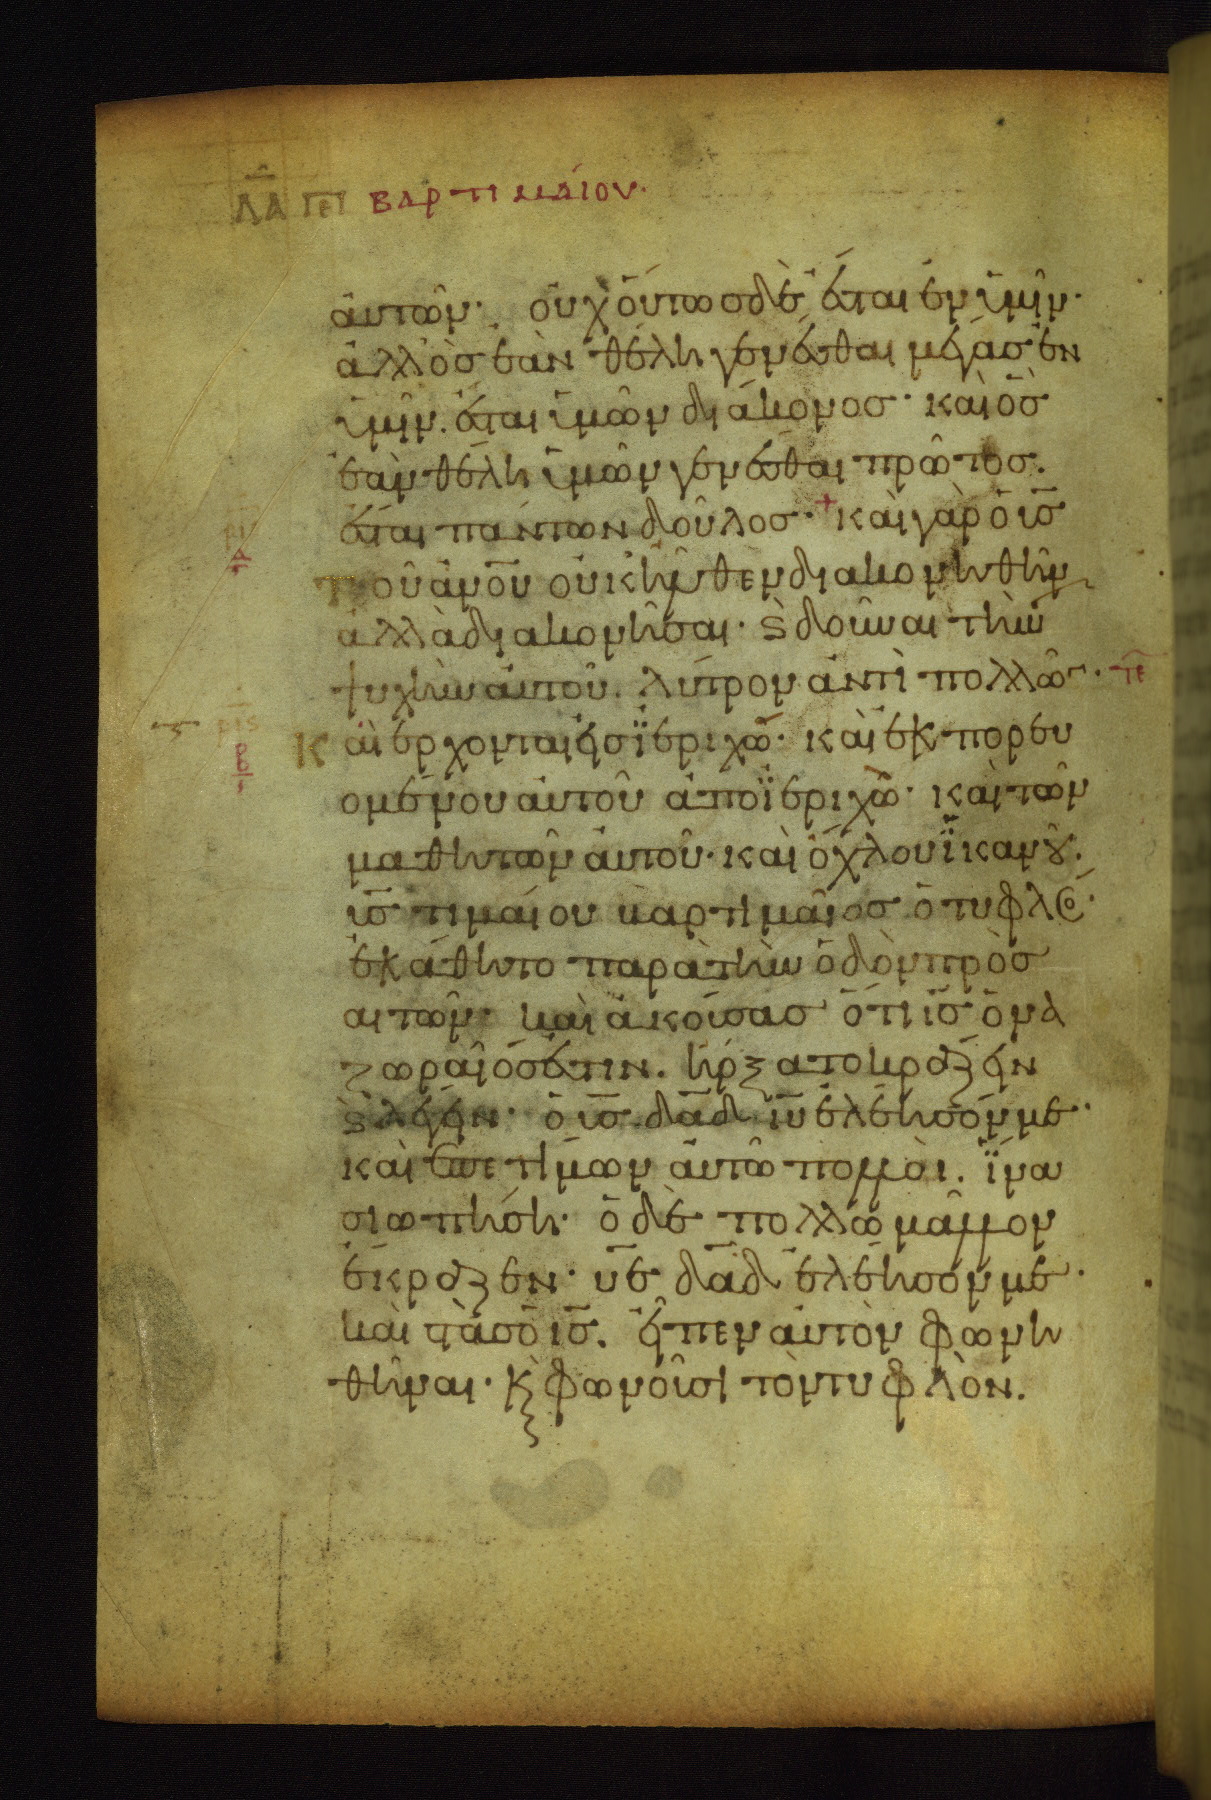 ΛΑ ΠΕΡΙ ΒΑΡΤΙΜΑΊΟΥ·
αὐτῶν· οὐχ οὕτωσ δὲ ἔσται ἐν ὑμῖν·
ἀλλ ὃσ ἐὰν θέλη γενέσθαι μέγασ ἐν
ὑμῖν. ἔσται ὑμῶν διάκονοσ· καὶ ὃσ
ἐὰν θέλη ὑμῶν γενέσθαι πρῶτοσ.
ἔσται πάντων δοῦλοσ· + καὶ γὰρ ὁ ι̅σ̅
τοῦ ἀν̅ο̅υ̅ οὐκ ἦλθεν διακονηθῆν
ἀλλὰ διακονῆσαι· ϗ δοῦναι τὴν
ψυχὴν αὐτοῦ. λύτρον ἀντὶ πολλῶ· τε
Καὶ ἔρχονται εἰσ ϊεριχώ· καὶ ἐκπορευ
ομένου αὐτοῦ ἀπὸ ϊεριχὼ· καὶ τῶν
μαθητῶν αὐτοῦ· καὶ ὄχλου ϊκανοῦ.
ι̅σ̅ τιμαίου βαρτιμαῖοσ ὁ τυφλὸσ·
ἐκάθητο παρὰ τὴν ὁδὸν προσ
αιτῶν· καὶ ἀκούσασ ὅτι ι̅σ̅ ὁ να
ζωραῖόσ ἐστιν. ἤρξατο κράζειν
ϗ λέγειν· ὁ ι̅σ̅ δ̅α̅δ̅ ι̅υ̅ ἐλέησόν με·
καὶ ἐπετίμων αὐτῶ πολλοὶ. ἵνα
σιωπήση· ὁ δὲ πολλῶ μᾶλλον
ἔκραζεν· υ̅ε̅ δ̅α̅δ̅ ἐλέησόν με·
καὶ στὰσ ὁ ι̅σ̅. εἶπεν αὐτὸν φωνη
θῆναι· κ̀ φωνοῦσι τὸν τυφλὸν.